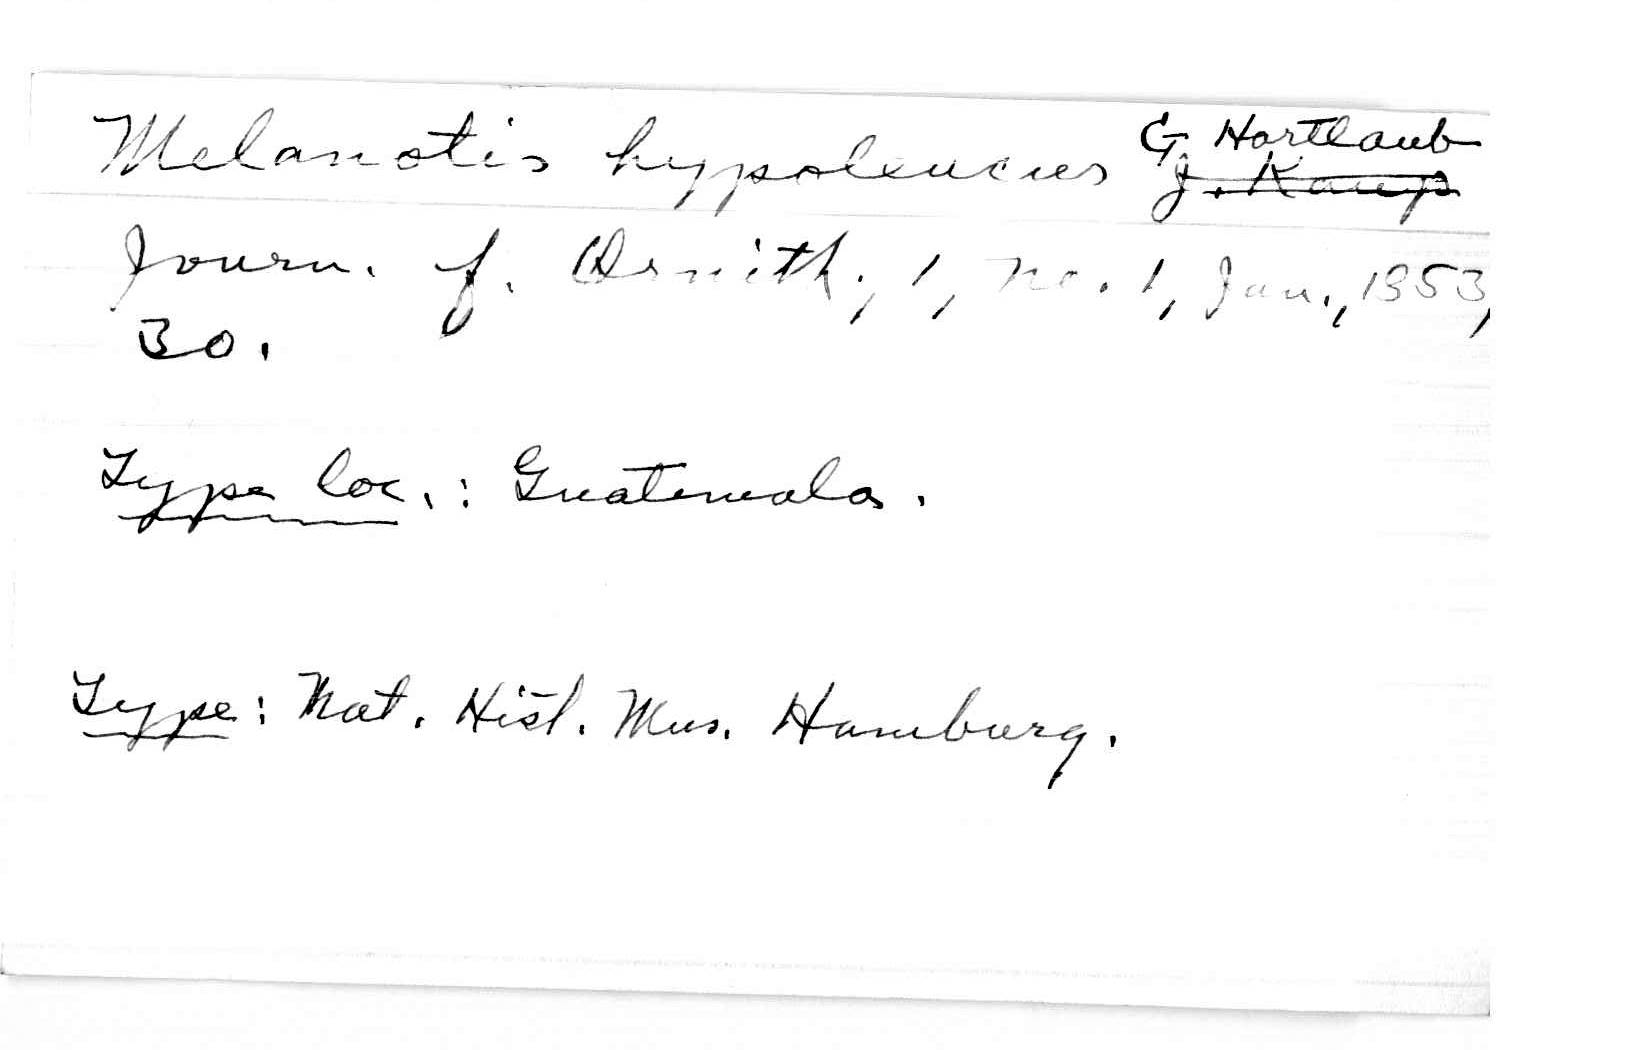 Melanotis hypoleucus G Hartlaub
J. Kaup
Journ. f. Ornith., 1, no. 1, Jan., 1853,
30.
Type loc.: Guatemala.
Type: Nat. Hist. Mus. Hamburg.